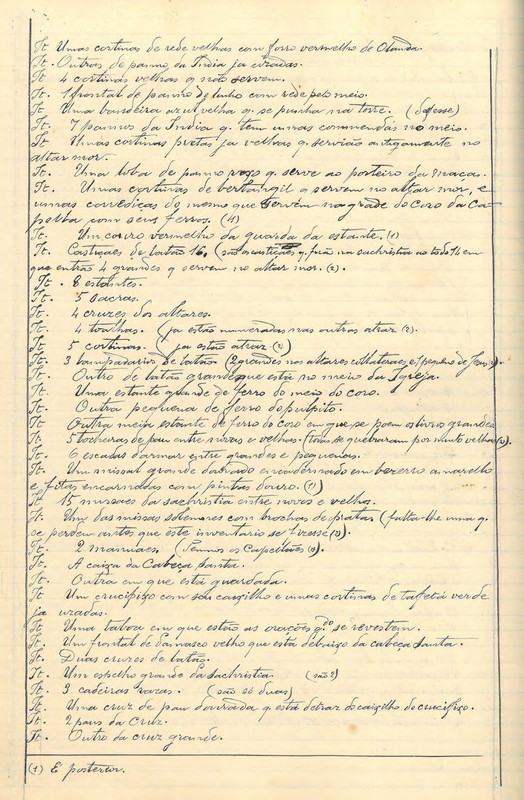 It. Umas cortinas de rede velhas com forro vermelho de Olanda.
It. Outras de panno da India ja uzadas.
It. 4 cortinas velhas q não servem.
It. 1 frontal de panno de linho com rede pelo meio.
It. Uma bandeira azul velha q. se punha na torre. (
It. 7 pannos da India q. tem umas commendas no meio.
It. Umas cortinas pretas ja velhas q servião antigamente no
altar mor.
It. Uma loba de panno roxo q serve ao porteiro da maças.
It. Umas cortinas de bertangil q servem no altar mor, e
umas corrediças do mesmo que servem na grade do coro da Ca-
pella com seus ferros. (4)
It. Um couro vermelho da guarda da estante. (1)
It. Castiçaes de latão 16. (são os castiçaes q. na sachristia ao todo 14 em
que entrão 4 grandes q servem no altar mor. (2).
It. 8 estantes.
It. 5 sacras.
It. 4 cruzes dos altares.
It. 4 toalhas. (ja estão numeradas nas outras atraz (2).
It. 5 cortinas. (ja estão atraz (2)
It. 3 lampadarios de latão (2 grandes nos altares collateraes e 1 pequeno de Jesus (2).
It. Outro de latão grande que está no meio da Igreja.
It. Uma estante grande de ferro do meio do coro.
It. Outra pequena de ferro do pulpito.
It. Outra meia estante de ferro do coro em que se poem os livros grandes.
It. 5 tocheiras de pau entre novas e velhas. (todas se quebraram por muito velhas (2).
It. 6 escadas darmar entre grandes e pequenas.
It. Um missal grande dourado encadernado em bezerro amarello
e fitas encarnadas com pintas douro. (1)
It. 15 missaes da sachristia entre novos e velhos.
It. Um das missas solemnes com brochas de prata (falta-lhe uma q.
se perdeu antes que este inventario se fizesse (2).
It. 2 manuaes. (Temnos os Capellães (2).
It. A caixa da Cabeça santa.
It. Outra em que está guardada.
It. Um crucifixo com seu caixilho e umas cortinas de tafetá verde
ja uzadas.
It. Uma taboa em que estão as orações qdo se revestem.
It. Um frontal de Damasco velho que está debaixo da cabeça santa.
It. Duas cruzes de latão.
It. Um espelho grande da Sachristia. (são 2)
It. 3 cadeiras razas. (são só duas)
It. Uma cruz de pau dourada q está detraz do caixilho do crucifixo.
It. 2 paus da Cruz.
It. Outro da cruz grande.
(1) E posterior.